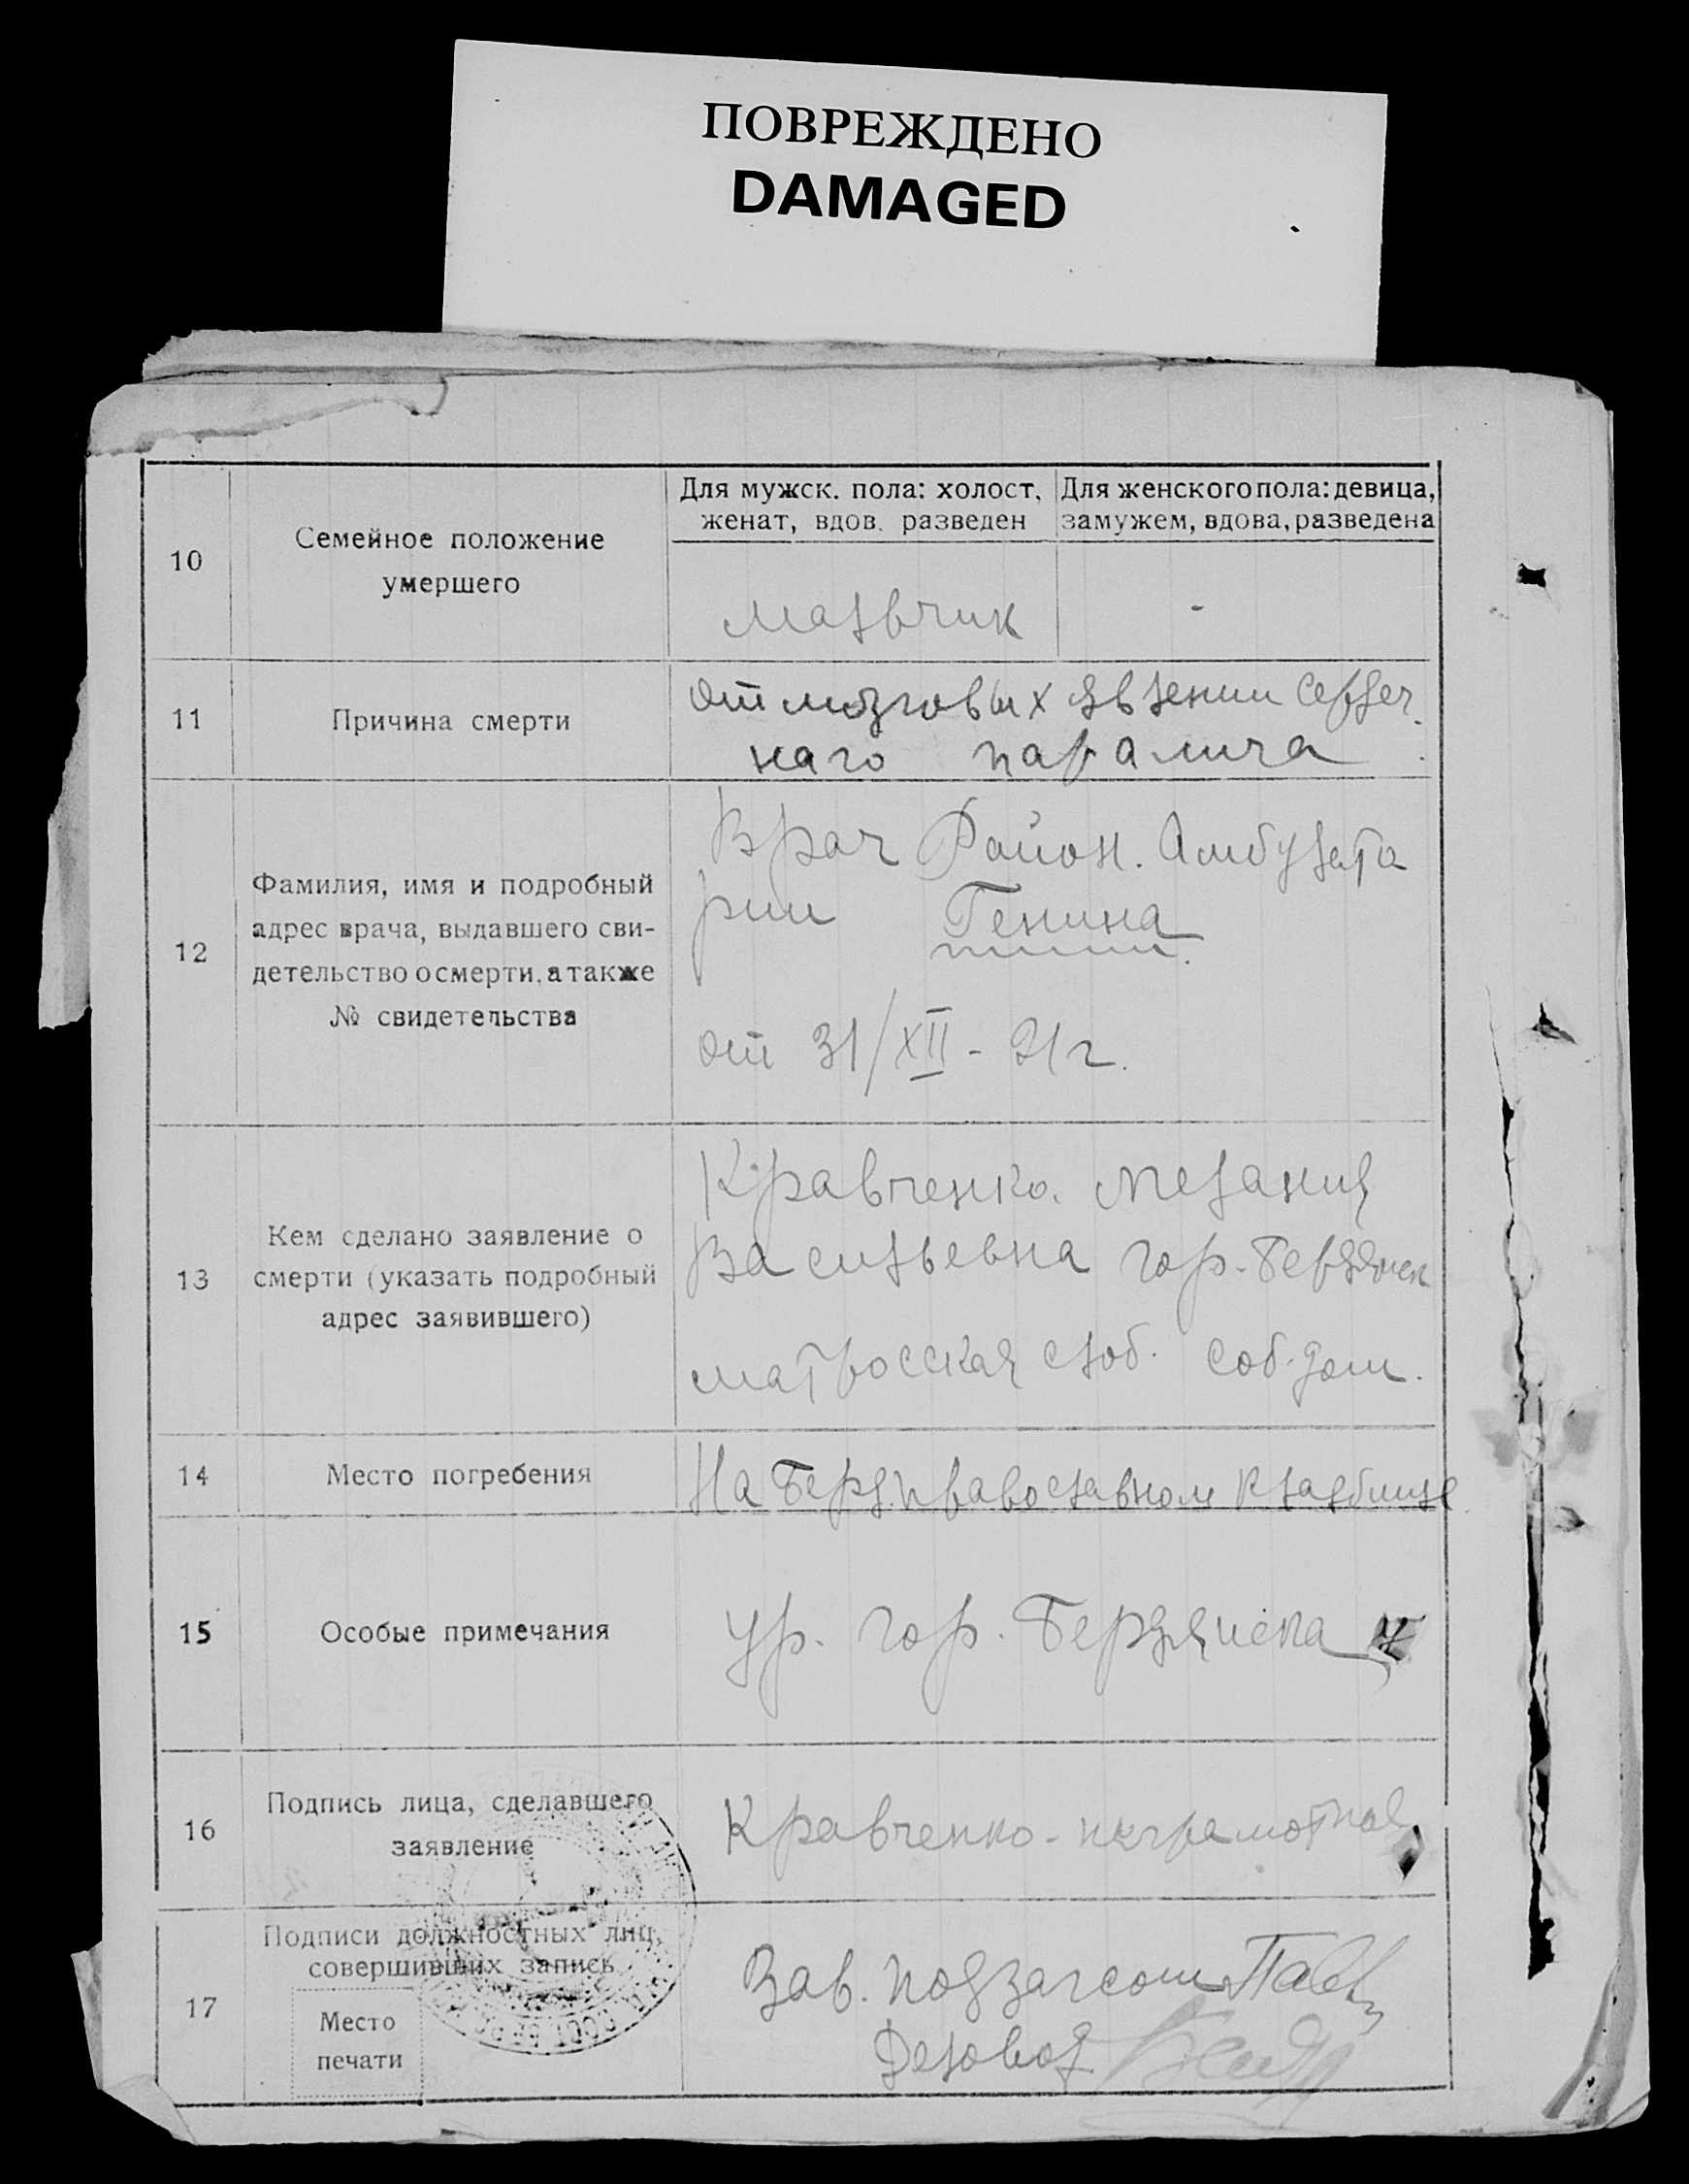 ПОВРЕЖДЕНО
DAMAGED
10
Семейное положение
умершего
Для мужск. пола: холост,
женат, вдов. разведен
Для женского пола: девица,
замужем, вдова, разведена
мальчик
-
11
Причина смерти
От мозговых явлении Сердеч
наго паралича
12
Фамилия, имя и подробный
адрес врача, выдавшего сви-
детельство о смерти, а также
№ свидетельства
Врач Район. Амбулато
рии Генина
от 31/XII - 21 г.
13
Кем сделано заявление о
смерти (указать подробный
адрес заявившего)
Кравченко Мелания
Васильевна гор. Бердянск
матросская слоб. соб. дом.
14
Место погребения
На Берд. православном кладбище
15
Особые примечания
Ур. гор. Бердянска
16
Подпись лица, сделавшего
заявление
Кравченко - неграмотная
17
Подписи должностных лиц,
совершивших запись
Место
печати
Зав. подзагсом
Деловод